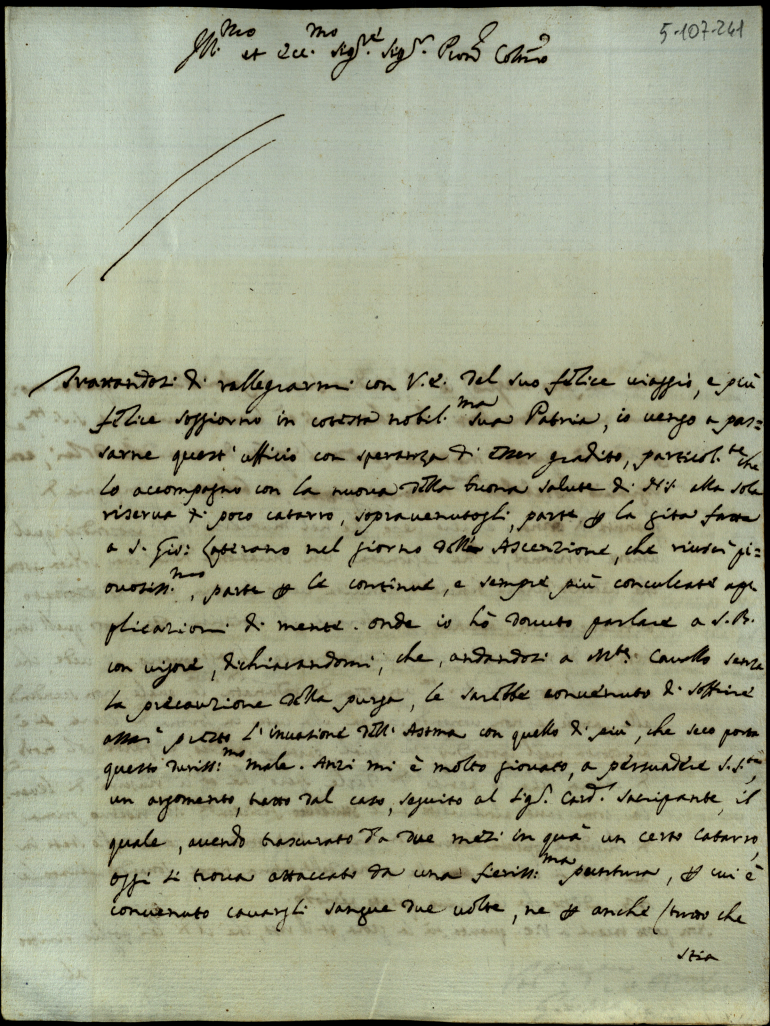 5-107-241
Ill.mo et Ecc.mo Sig.re Sig.r Pron.e Col.mo
Trattandosi di rallegrarmi con V.E. del suo felice viaggio, e più
felice soggiorno in cotesta nobil.ma sua Patria, io vengo a pas=
sarne quest'ufficio con speranza di esser gradito, particol.te che
lo accompagno con la nuova della buona salute di N.S. alla sola
riserva di poco catarro, sopravenutogli, parte p la gita fatta
a S. Gio: Laterano nel giorno dell' Ascenzione, che riuscì pi=
ovosiss.mo, parte p le continue, e sempre più conculcate ap
plicazioni di mente. onde io hò dovuto parlare a S.B.
con vigore, dichiarandomi, che, andandosi a M.te Cavallo senza
la precauzione della purga, le sarebbe convenuto di soffrire
assai presto l'invasione dell' Asma con quello di più, che seco porta
questo duriss:mo male. Anzi mi è molto giovato, a persuadere S.S.tà
un argomento, tratto dal caso, seguito al Sig.r Card.l Sacripante, il
quale, avendo trascurato da due mesi in quà un certo catarro,
oggi si trova attaccato da una fieriss:ma puntura, p cui è
convenuto cavargli sangue due volte, ne p anche (turto che
stia